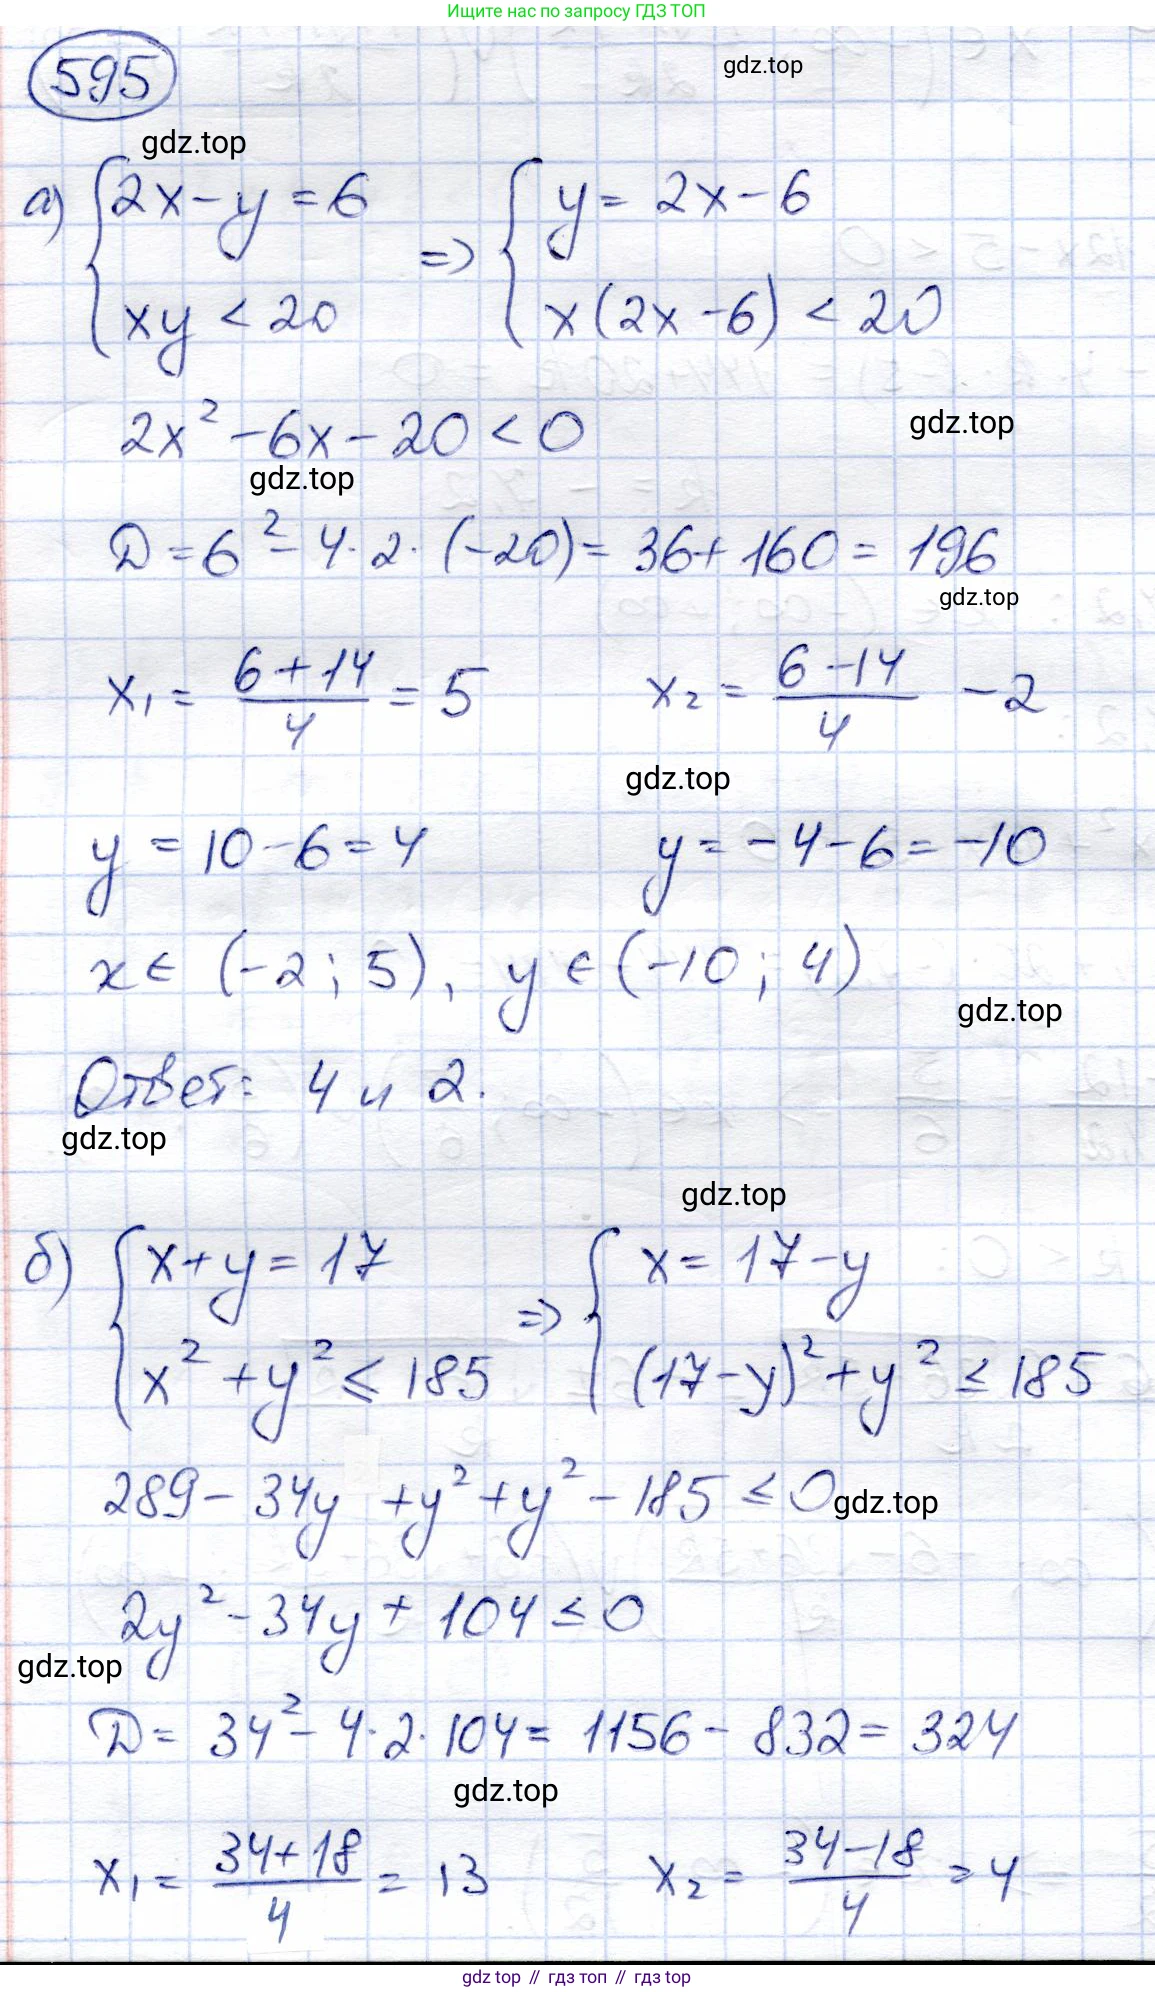 Ищите нас по запросу ГДЗ ТОП
595
gdz.top
gdz.top
а) { 2x - y = 6 => { y = 2x - 6
xy < 20 x(2x - 6) < 20
2x² - 6x - 20 < 0
gdz.top
gdz.top
D = 6² - 4 · 2 · (-20) = 36 + 160 = 196
gdz.top
x₁ = (6 + 14)/4 = 5 x₂ = (6 - 14)/4 - 2
gdz.top
y = 10 - 6 = 4 y = -4 - 6 = -10
x ∈ (-2; 5), y ∈ (-10; 4)
gdz.top
Ответ: 4 и 2.
gdz.top
gdz.top
б) { x + y = 17 => { x = 17 - y
x² + y² ≤ 185 (17 - y)² + y² ≤ 185
289 - 34y + y² + y² - 185 ≤ 0
gdz.top
2y² - 34y + 104 ≤ 0
gdz.top
D = 34² - 4 · 2 · 104 = 1156 - 832 = 324
gdz.top
x₁ = (34 + 18)/4 = 13 x₂ = (34 - 18)/4 = 4
gdz top // гдз топ // gdz top